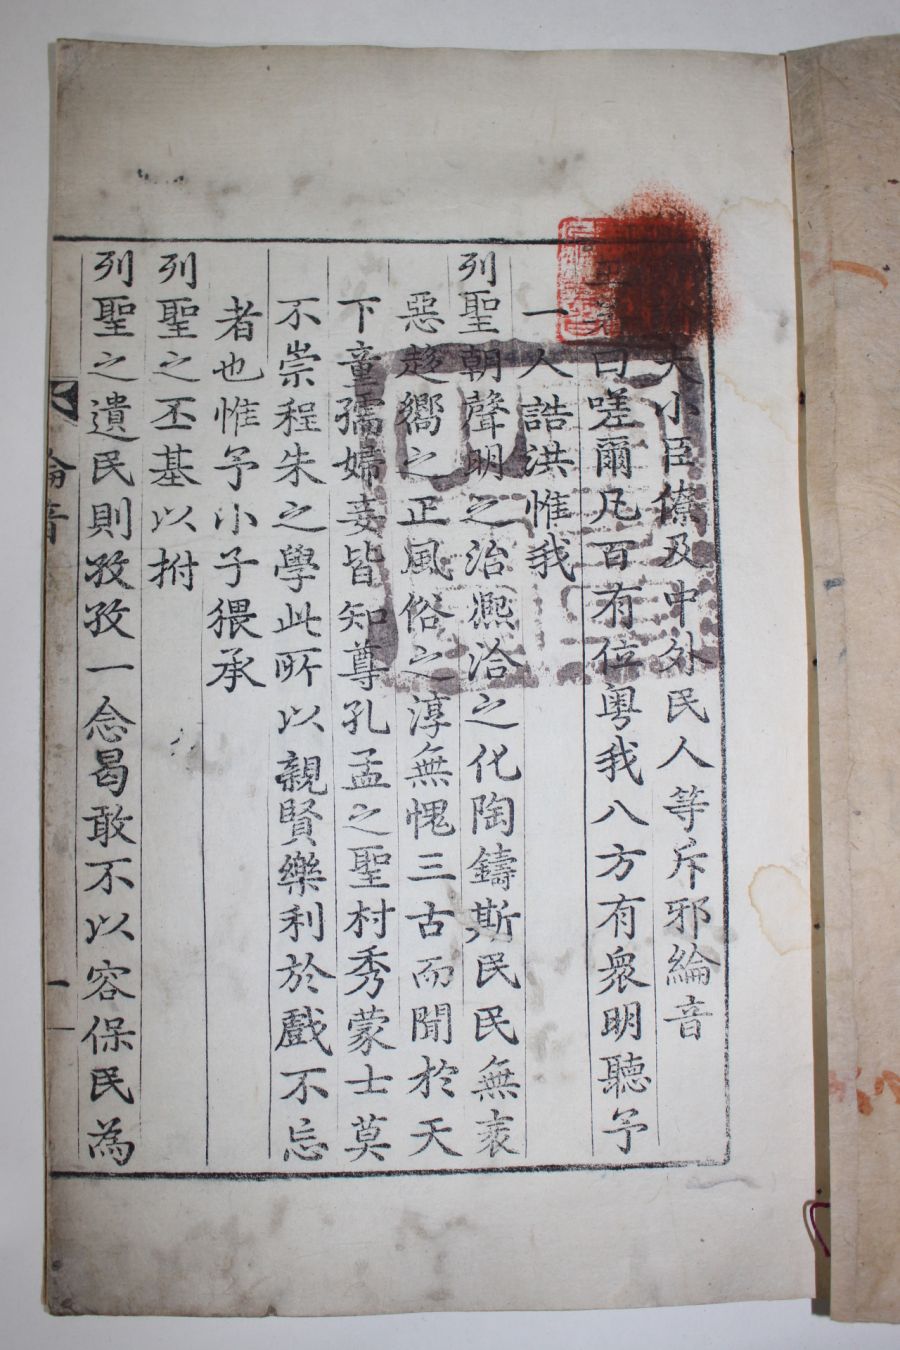 大小臣僚及中外民人等斥邪綸音
曰嗟爾凡百有位粤我八方有衆明聽予
一人誥洪惟我
列聖朝聲明之治熈洽之化陶鑄斯民民無袤
惡趍嚮之正風俗之淳無愧三古而聞於天
下童孺婦妾皆知尊孔孟之聖村秀蒙士莫
不崇程朱之學此所以親賢樂利於戲不忘
者也惟予小子猥承
列聖之丕基以拊
列聖之遺民則孜孜一念曷敢不以容保民為
綸音
一